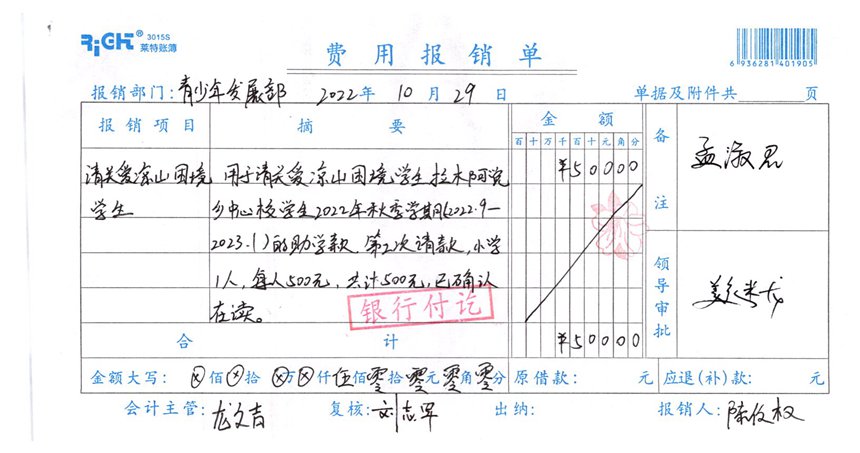 RiGHT 3015S
莱特账簿
费用报销单
6 936281 401905
报销部门: 青少年发展部 2022年 10月 29日 单据及附件共 页
报销项目 摘要 金额 备注
百十万千百十元角分
请关爱凉山困境学生
用于请关爱凉山困境学生拉木阿觉
乡中心校学生2022年秋季学期(2022.9—
2023.1)的助学款,第2次请款,小学
1人,每人500元,共计500元,已确认
在读。
¥50000
银行付讫
领导审批
合计 ¥50000
金额大写: ⊗佰⊗拾⊗万⊗仟伍佰零拾零元零角零分 原借款: 元 应退(补)款: 元
会计主管: 龙文吉 复核: 出纳: 报销人: